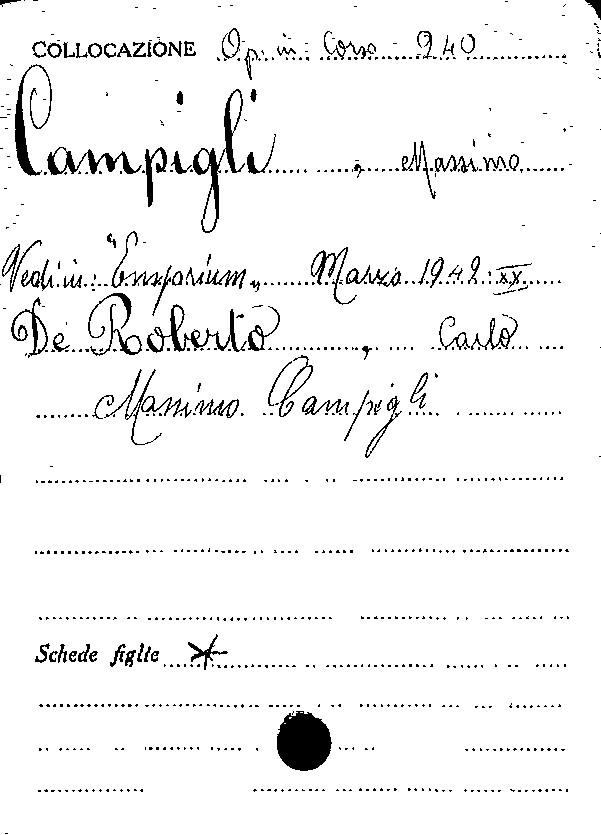 COLLOCAZIONE Op. in Corso 240
Campigli, Massimo
Vedi in: "Emporium" Marzo 1942 XX
De Roberto, Carlo
Massimo Campigli
Schede figlie